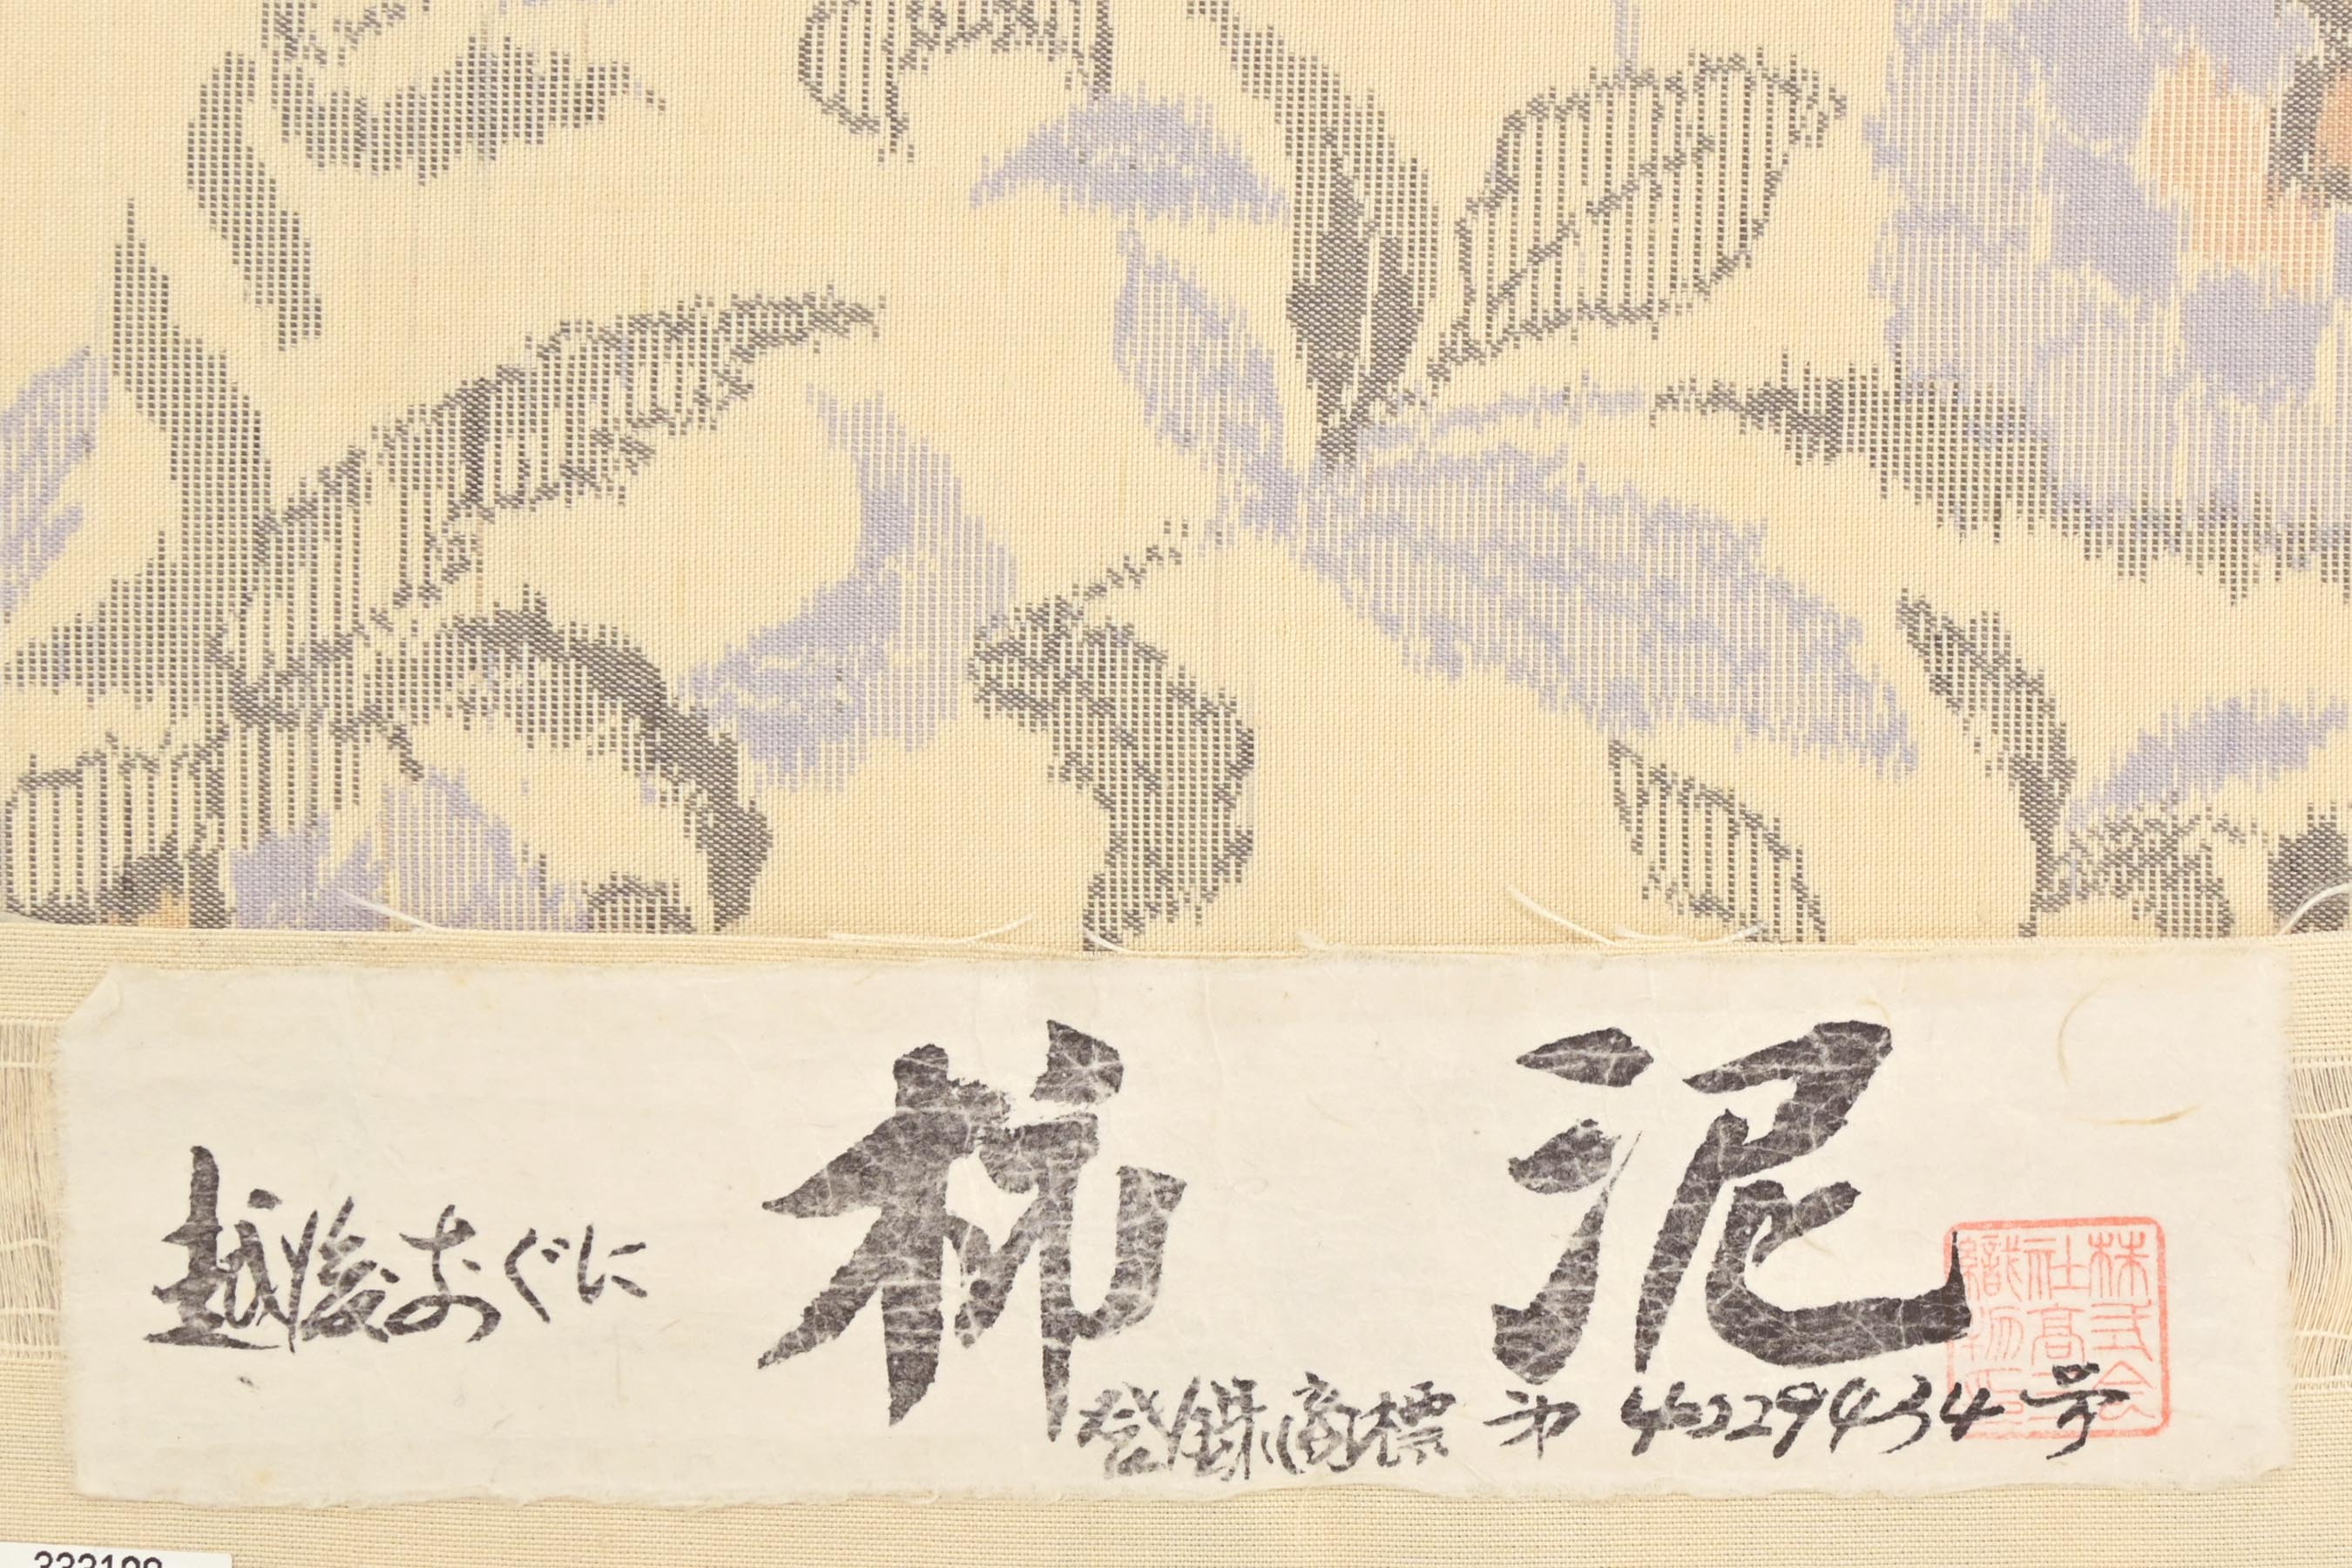 越後おぐに
柿 泥
登録商標 第4229434号
株式会社高三織物